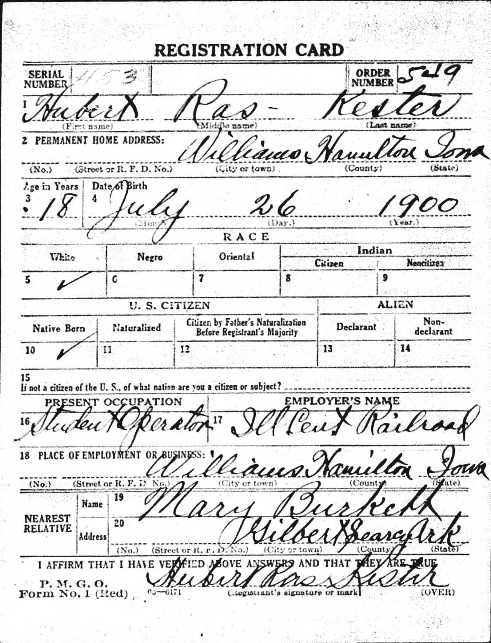 REGISTRATION CARD
SERIAL NUMBER 453 ORDER NUMBER 549
1 Hubert Ras- Kester
(First name) (Middle name) (Last name)
2 PERMANENT HOME ADDRESS: Williams Hamilton Iowa
(No.) (Street or R. F. D. No.) (City or town) (County) (State)
Age in Years Date of Birth
3 18 4 July 26 1900
(Month.) (Day.) (Year.)
RACE
White Negro Oriental Indian
Citizen Noncitizen
5 ✓ 6 7 8 9
U. S. CITIZEN ALIEN
Native Born Naturalized Citizen by Father's Naturalization Before Registrant's Majority Declarant Non-declarant
10 ✓ 11 12 13 14
15
If not a citizen of the U. S., of what nation are you a citizen or subject?
PRESENT OCCUPATION EMPLOYER'S NAME
16 Student Operator 17 Ill Cent Railroad
18 PLACE OF EMPLOYMENT OR BUSINESS:
Williams Hamilton Iowa
(No.) (Street or R. F. D. No.) (City or town) (County) (State)
NEAREST RELATIVE Name 19 Mary Burkett
Address 20 Gilbert Searcy Ark
(No.) (Street or R. F. D. No.) (City or town) (County) (State)
I AFFIRM THAT I HAVE VERIFIED ABOVE ANSWERS AND THAT THEY ARE TRUE
P. M. G. O. Hubert Ras Kester
Form No. 1 (Red) 03-6171 (Registrant's signature or mark) (OVER)